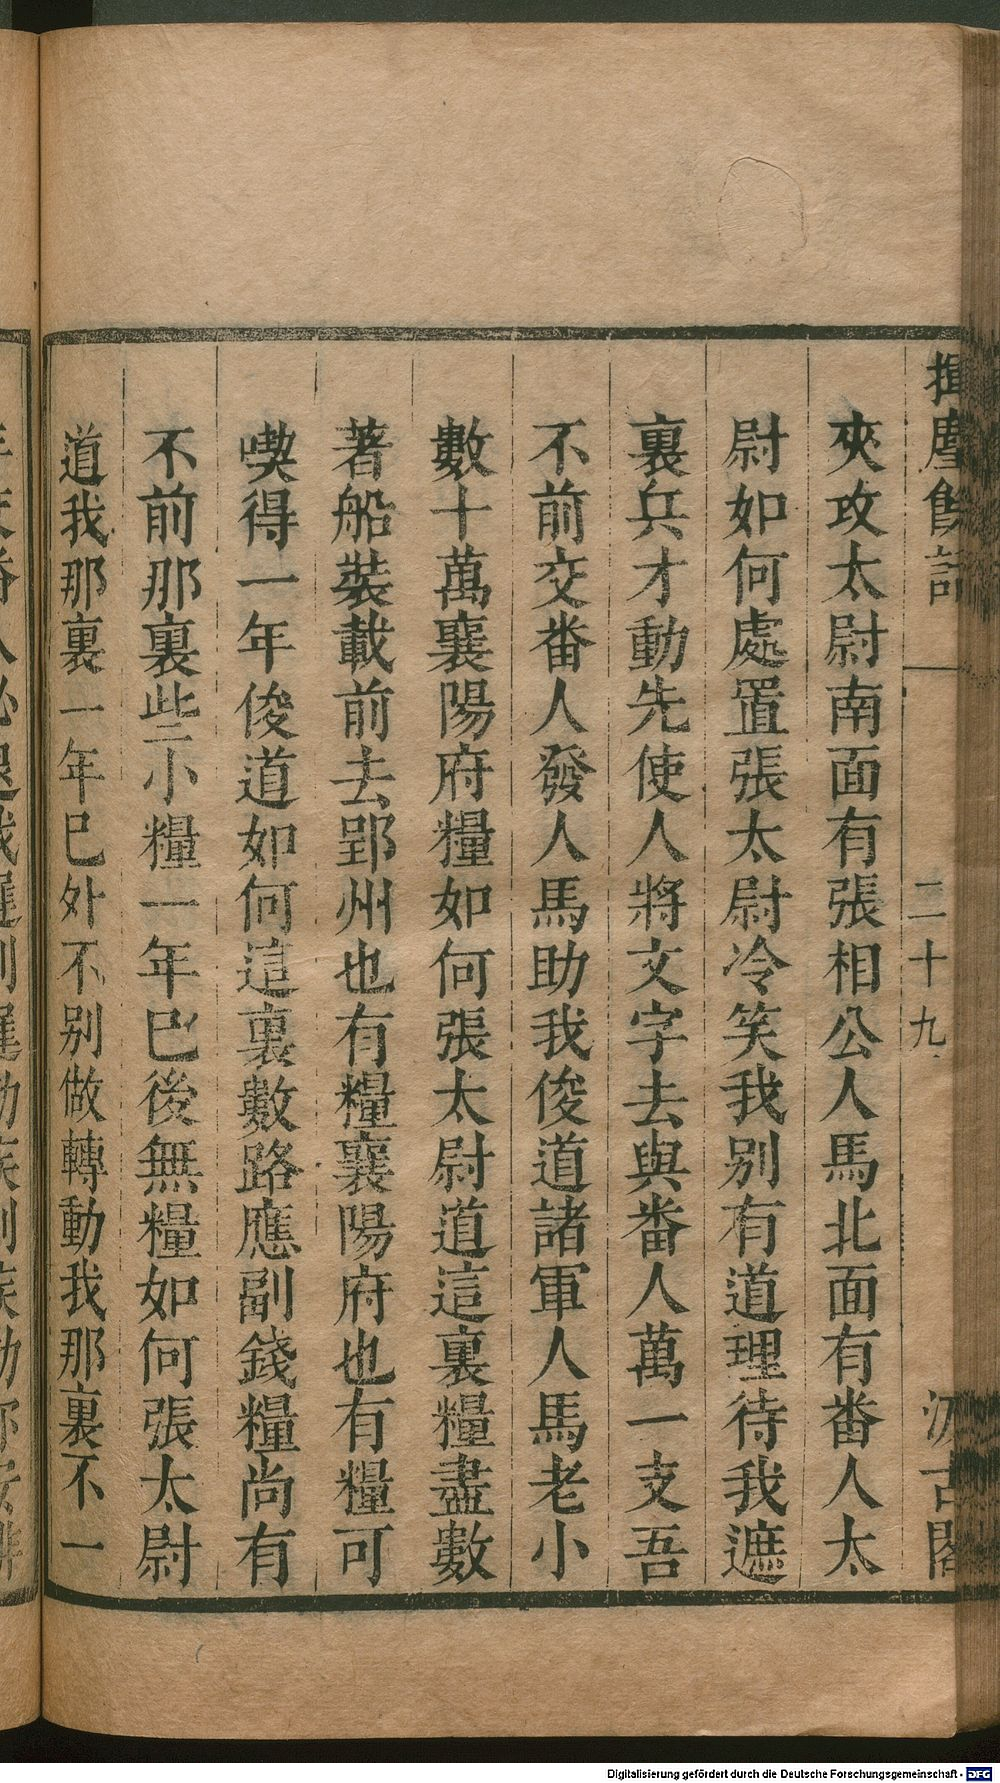 揮麈餘話
二十九
汲古閣
夾攻太尉南面有張相公人馬北面有番人太
尉如何處置張太尉冷笑我別有道理待我遮
裏兵才動先使人將文字去與番人萬一支吾
不前交番人發人馬助我俊道諸軍人馬老小
數十萬襄陽府糧如何張太尉道這裏糧盡數
著船裝載前去郢州也有糧襄陽府也有糧可
喫得一年俊道如何這裏數路應副錢糧尚有
不前那裏些小糧一年已後無糧如何張太尉
道我那裏一年已外不別做轉動我那裏不一
Digitalisierung gefördert durch die Deutsche Forschungsgemeinschaft - DFG